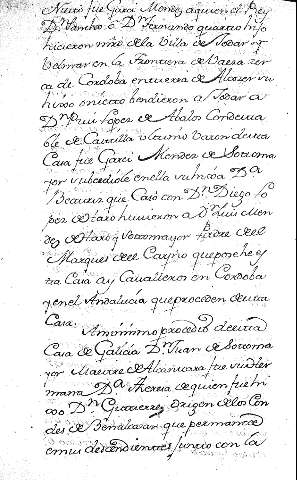 Nieto fue Garci Mendez a quien el Rey
Dn Sancho o Dn Fernando quarto hijo
hicieron mrd de la Villa de Jodar y
Belmar en la Frontera de Baesa cer
ca de Cordoba en tierra de Alcozer su
hijo o nieto bendieron a Jodar a
Dn Rui Lopez de Abalos Condesta
ble de Castilla ultimo baron de esta
Casa fue Garci Mendez de Sotoma
yor subcediole en ella su hija Da
Beatriz que Caso con Dn Diego Lo
pez de Haro huvieron a Dn Luis Men
dez de Haro y Sotomayor Padre de el
Marques de el Carpio que posehe
tra Casa ay Cavalleros en Cordoba
y en el Andalucia que proceden de esta
Casa.
Asi mismo procedio de esta
Casa de Galicia Dn Juan de Sotoma
yor Maestre de Alcantara fue su her
mana Da Theresa de quien fue hi
jo Dn Gutierre origen de los Con
des de Benalcazar que permanece
en sus descendientes junto con la